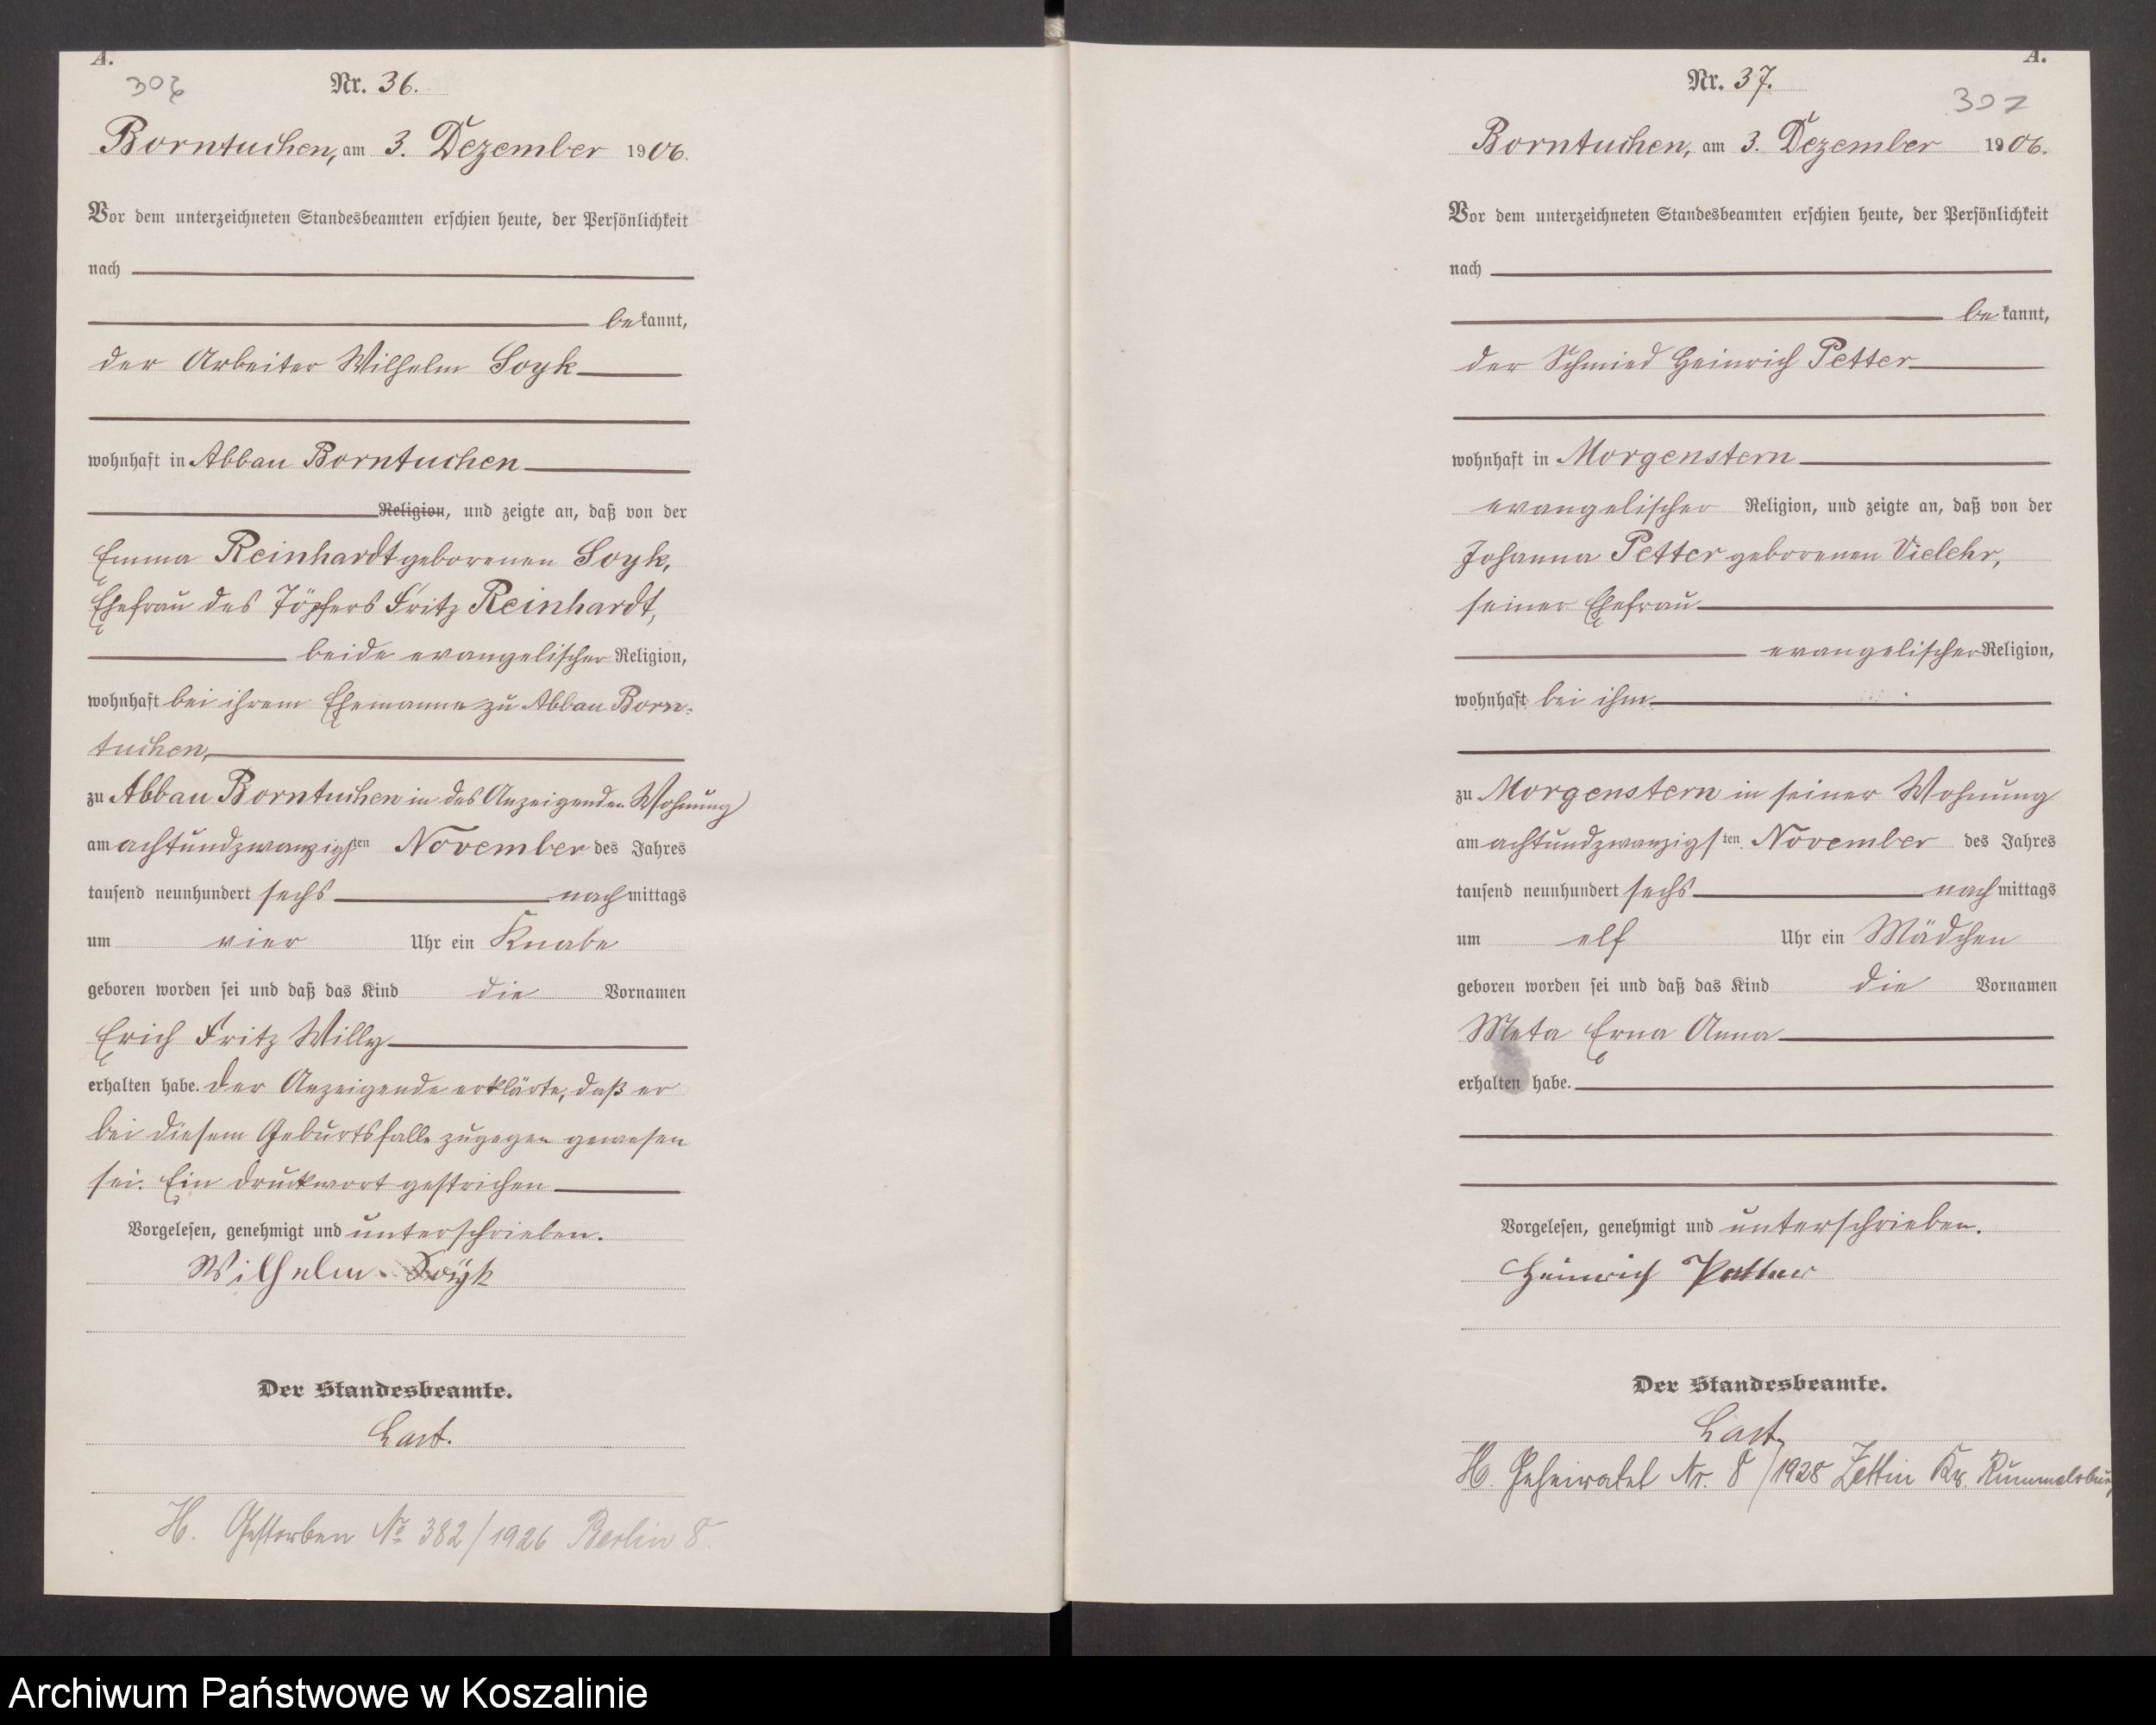 A.
306
Nr. 36.
Borntuchen, am 3. Dezember 1906.
Vor dem unterzeichneten Standesbeamten erschien heute, der Persönlichkeit
nach
bekannt,
der Arbeiter Wilhelm Soyk
wohnhaft in Abbau Borntuchen
Religion, und zeigte an, daß von der
Emma Reinhardt geborenen Soyk,
Ehefrau des Töpfers Fritz Reinhardt,
beide evangelischer Religion,
wohnhaft bei ihrem Ehemanne zu Abbau Born-
tuchen,
zu Abbau Borntuchen in des Anzeigenden Wohnung
am achtundzwanzigsten November des Jahres
tausend neunhundert sechs nachmittags
um vier Uhr ein Knabe
geboren worden sei und daß das Kind die Vornamen
Erich Fritz Willy
erhalten habe. Der Anzeigende erklärte, daß er
bei diesem Geburtsfalle zugegen gewesen
sei. Ein Druckwort gestrichen
Vorgelesen, genehmigt und unterschrieben.
Wilhelm Soyk
Der Standesbeamte.
Last.
H. Gestorben No 382/1926 Berlin 8.
A.
307
Nr. 37.
Borntuchen, am 3. Dezember 1906.
Vor dem unterzeichneten Standesbeamten erschien heute, der Persönlichkeit
nach
bekannt,
der Schmied Heinrich Petter
wohnhaft in Morgenstern
evangelischer Religion, und zeigte an, daß von der
Johanna Petter geborenen Vielehr,
seiner Ehefrau
evangelischer Religion,
wohnhaft bei ihm
zu Morgenstern in seiner Wohnung
am achtundzwanzigsten November des Jahres
tausend neunhundert sechs nachmittags
um elf Uhr ein Mädchen
geboren worden sei und daß das Kind die Vornamen
Meta Erna Anna
erhalten habe.
Vorgelesen, genehmigt und unterschrieben.
Heinrich Petter
Der Standesbeamte.
Last.
H. Geheiratet Nr. 8/1928 Zettin Kr. Rummelsburg
Archiwum Państwowe w Koszalinie